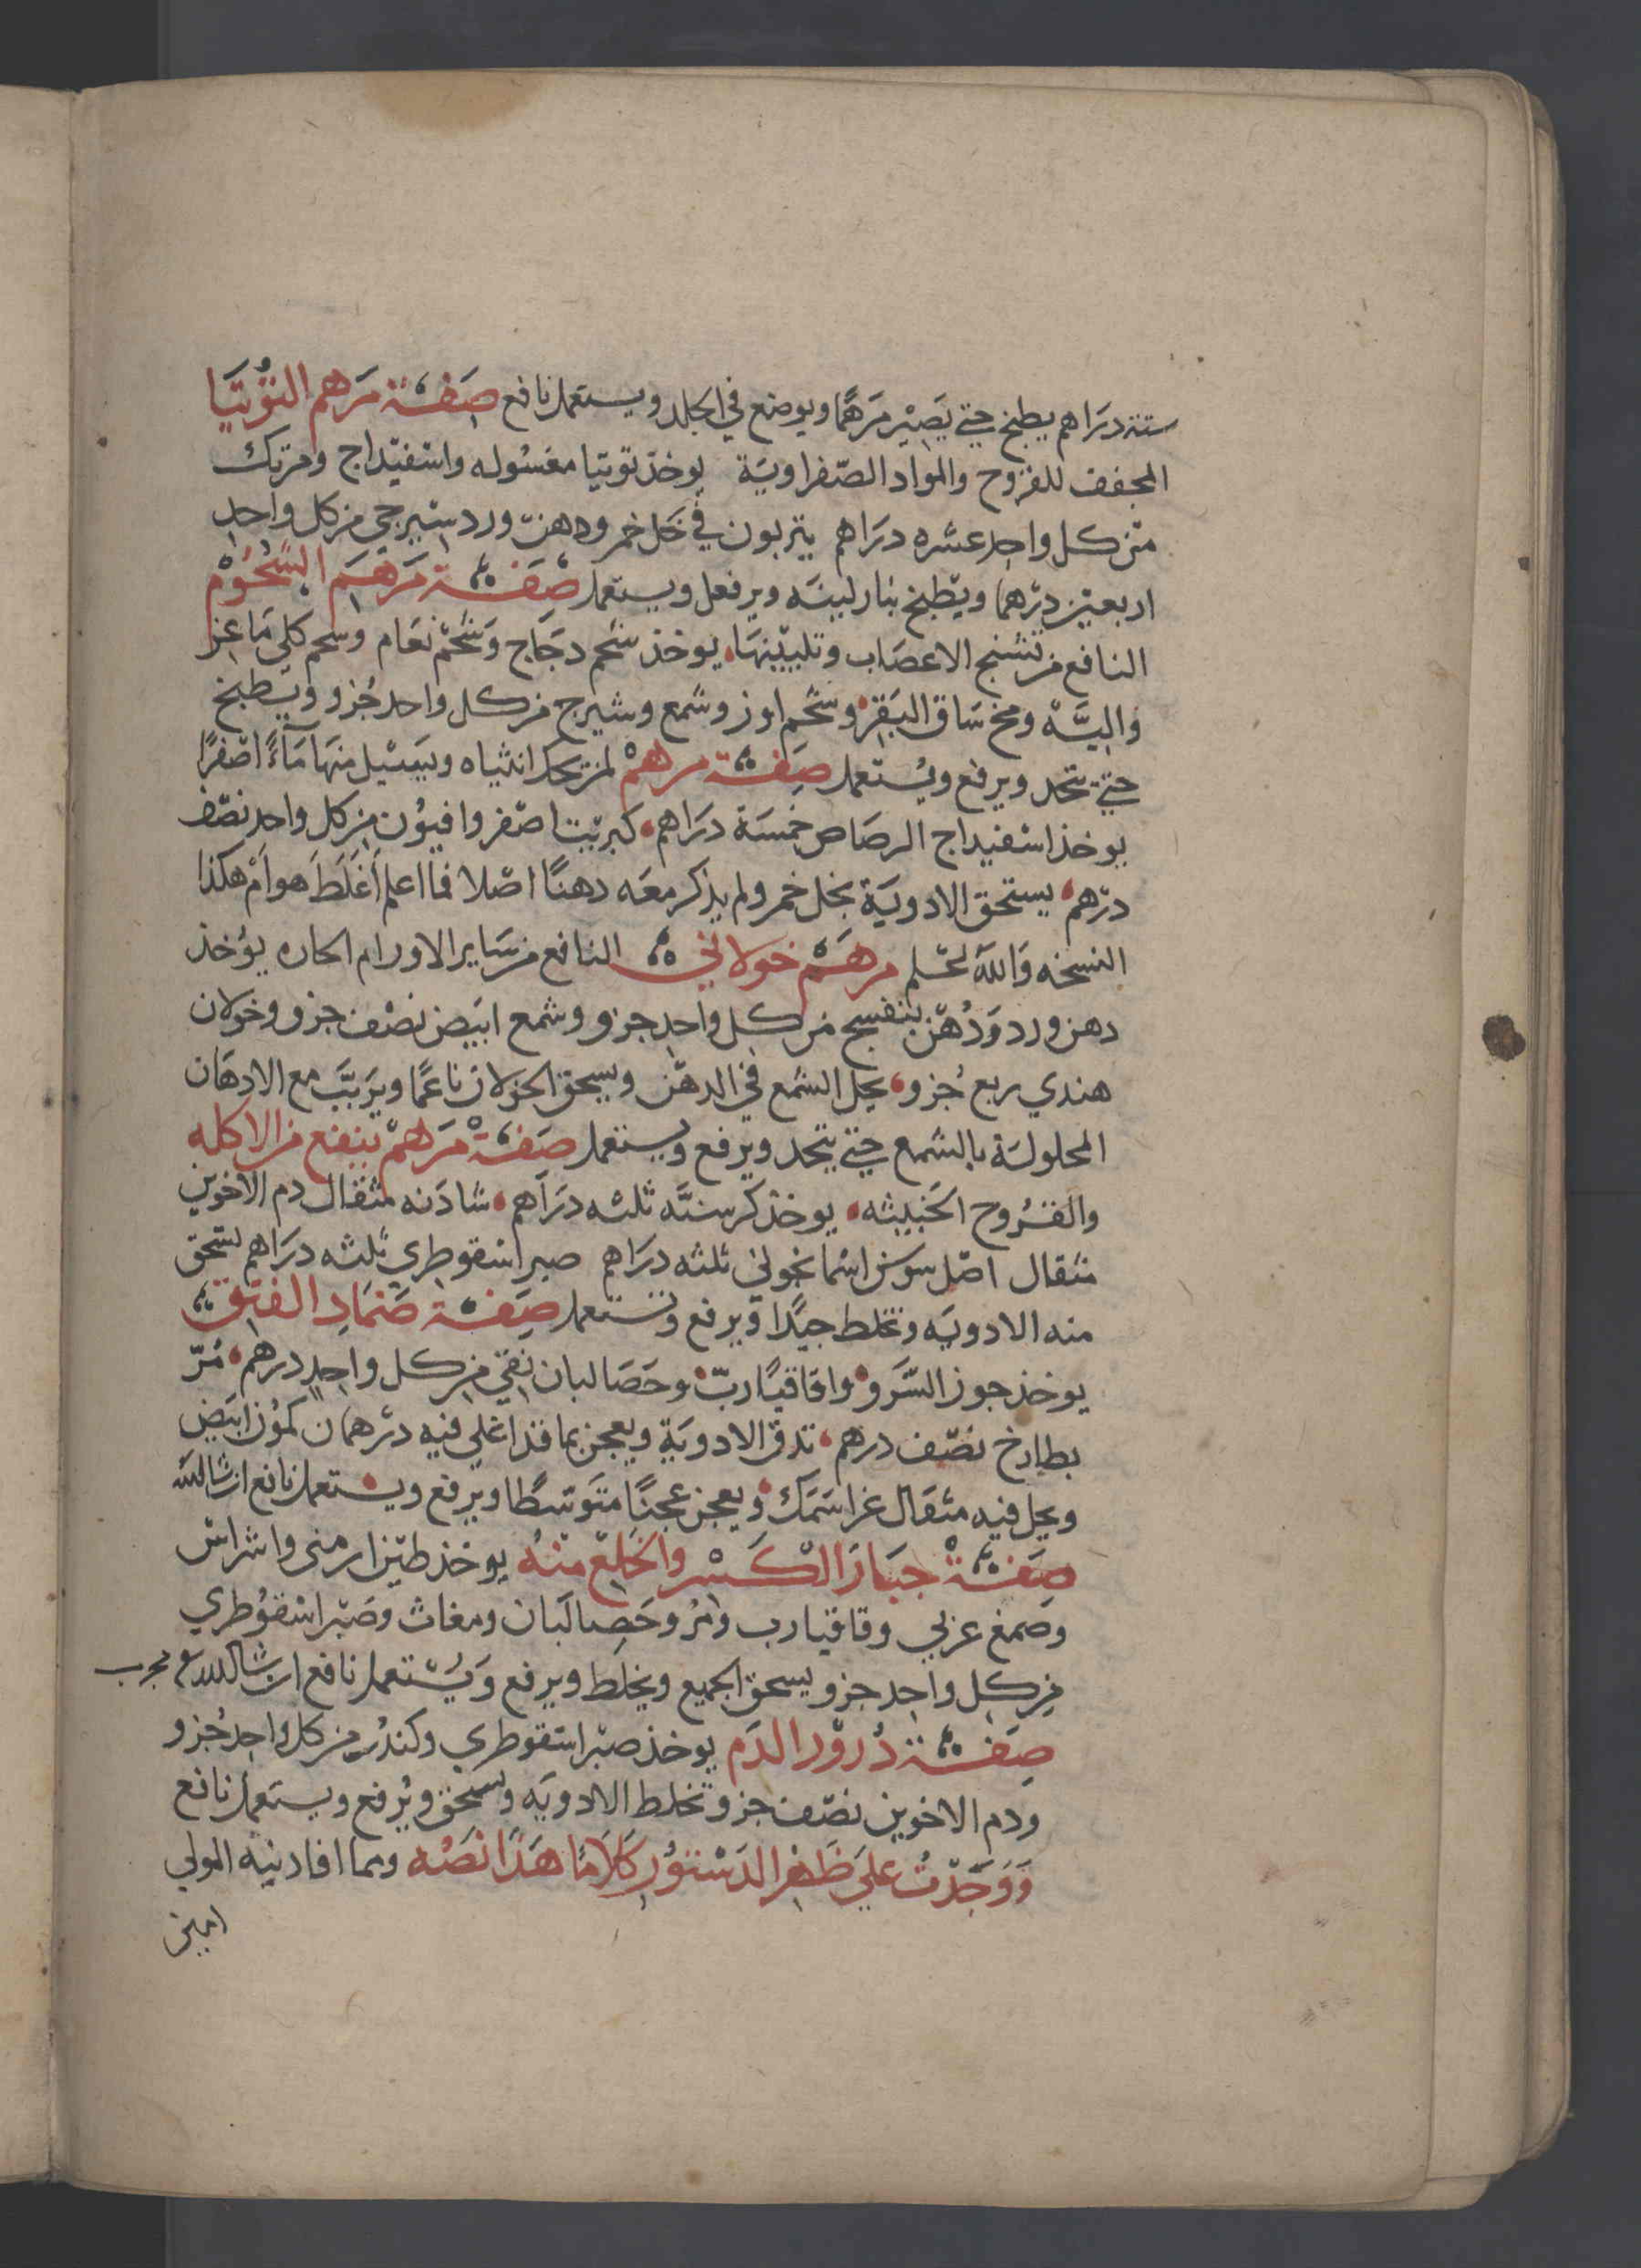 ستة دراهم يطبخ حتى يصير مرهما ويوضع في الجلد ويستعمل نافع صفة مرهم التوتيا
المجفف للقروح والمواد الصفراوية يوخذ توتيا مغسوله واسفيداج ومرتك
من كل واحد عشره دراهم يتربون في خل خمر ودهن ورد سيرجي من كل واحد
اربعين درهما ويطبخ بنار لينه ويرفعل ويستعمل صفة مرهم الشحوم
النافع من تشنج الاعصاب وتليينها يوخذ شحم دجاج وشحم نعام وشحم كلى ماعز
واليّه ومخ ساق البقر وشحم اوز وشمع وشيرج من كل واحد جزو ويطبخ
حتى يتحد ويرفع ويستعمل صفة مرهم لمن تحكه انثياه ويسيل منها ماءً اصفرًا
يوخذ اسفيداج الرصاص خمسة دراهم كبريت اصفر وافيون من كل واحد نصف
درهم يستحق الادوية بخل خمر ولم يذكر معه دهنًا اصلا فما اعلم أغلط هو أم هكذا
النسخه والله اعلم مرهم خولاني النافع من ساير الاورام الحاره يؤخذ
دهن ورد ودهن بنفسج من كل واحد جزو وشمع ابيض نصف جزو وخولان
هندي ربع جزو يحل الشمع في الدهن ويسحق الخولان ناعمًا ويربَّب مع الادهان
المحلولة بالشمع حتى يتحد ويرفع ويستعمل صفة مرهم ينفع من الاكله
والقروح الخبيثه يوخذ كرسنّه ثلثه دراهم شادنه مثقال دم الاخوين
مثقال اصل سوسن اسمانجوني ثلثه دراهم صبر اسقوطري ثلثه دراهم تسحق
منه الادويه وتخلط جيّدا ويرفع وتستعمل صفة ضماد الفتق
يوخذ جوز السرو واقاقيا ربّ وحصا لبان نقي من كل واحد درهم مُرّ
بطارخ نصف درهم تدق الادوية ويعجن بما قد اغلي فيه درهمان كمون ابيض
ويحل فيه مثقال غرا سمك ويعجن عجنًا متوسطًا ويرفع ويستعمل نافع ان شا الله
صفة جبار الكسر والخلع منه يوخذ طين ارمني واشراس
وصمغ عربي وقاقيا رب ومر وحصا لبان ومغاث وصبر اسقوطري
من كل واحد جزو يسحق الجميع ويخلط ويرفع ويستعمل نافع ان شا الله مجرب
صفة ذرور الدم يوخذ صبر اسقوطري وكندر من كل واحد جزو
ودم الاخوين نصف جزو تخلط الادويه وتسحق ويرفع ويستعمل نافع
ووجدت على ظهر الدستور كلاما هذا نصه ومما افادنيه المولى
امين